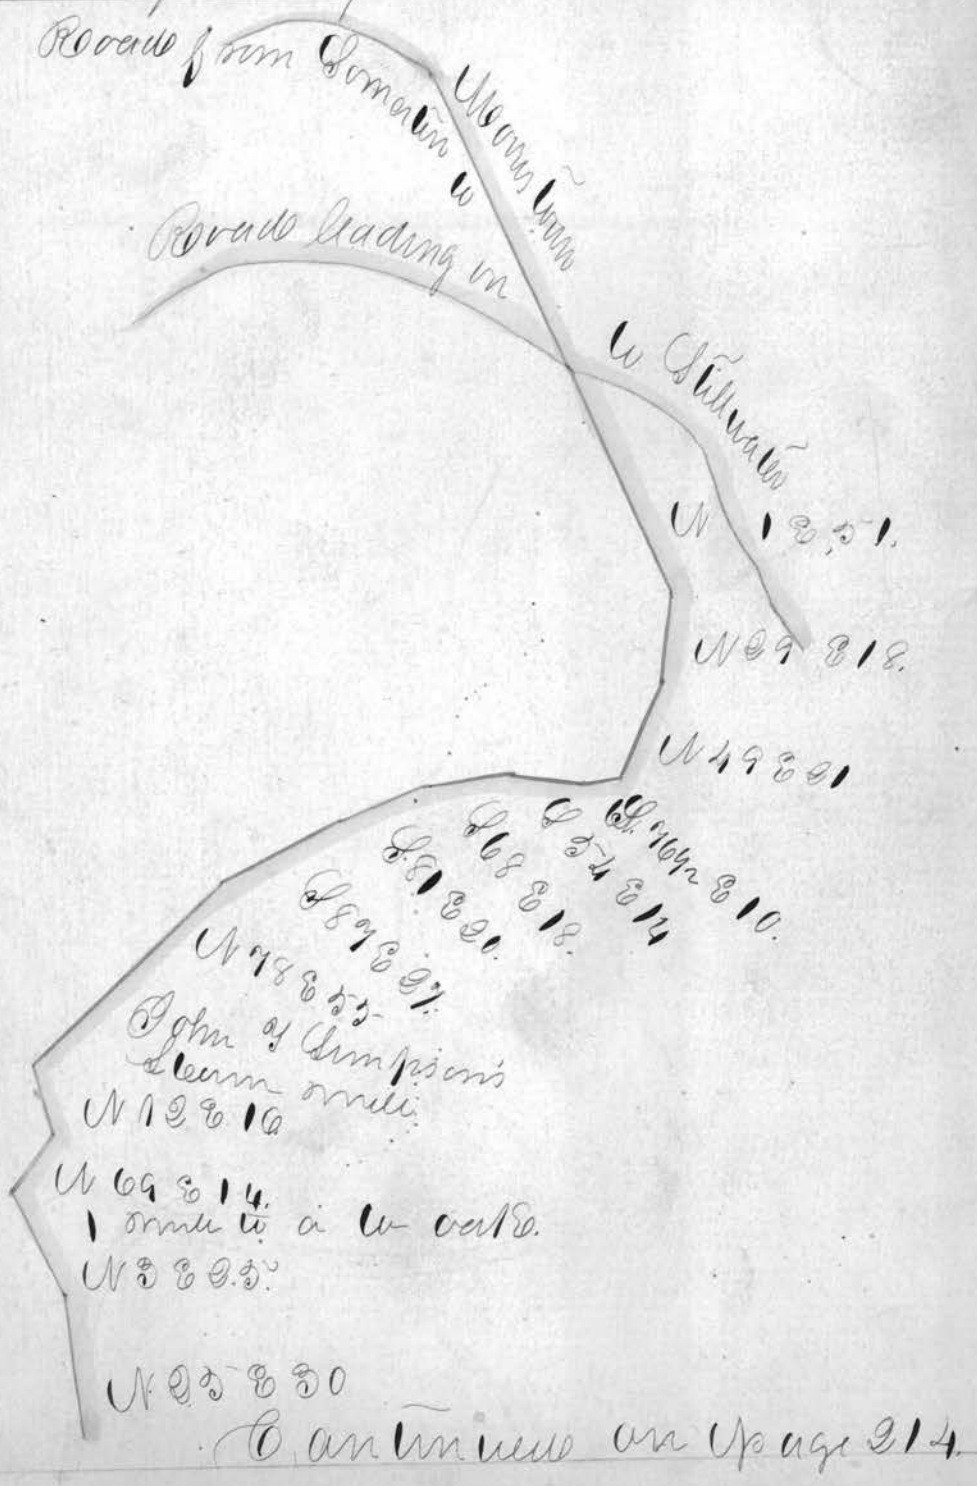 Road from Somerton to Morristown
Road leading in to Stillwater
N 1 E 51.
N 29 E 18.
N 49 E 21
S. 76½ E 10.
S 54 E 14
S 69 E 18.
S. 81 E 20.
S 87 E 27.
N 78 E 55
John Y Simpson's
Steam mill.
N 12 E 16
N 69 E 14.
1 mile to a w oak E.
N 3 E 25.
N. 25 E 30
Continued on page 214.